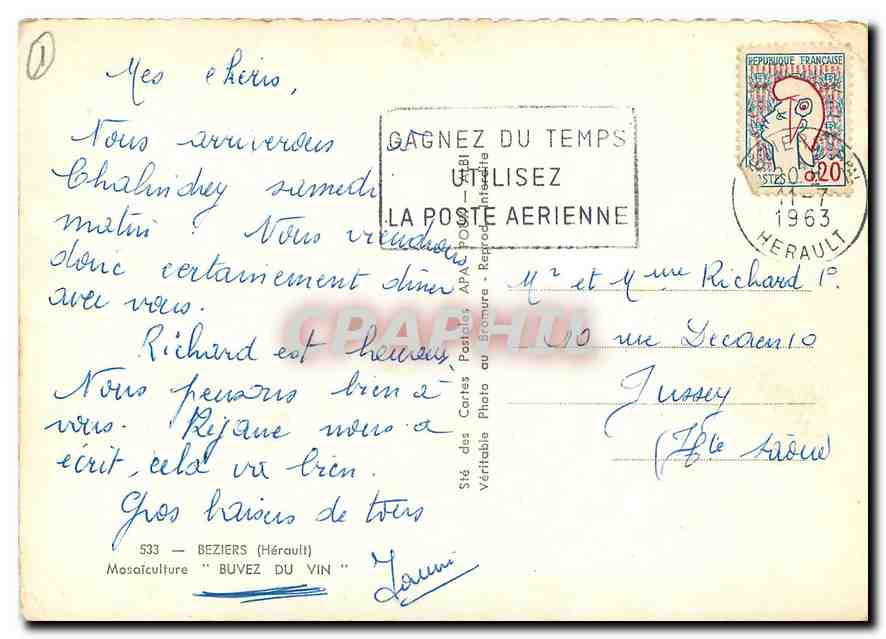 1
Mes chéris,
Nous arriverons à
Chalindrey samedi
matin. Nous viendrons
donc certainement dîner
avec vous.
Richard est heureux,
Nous pensons bien à
vous. Réjane nous a
écrit, cela va bien.
Gros baisers de tous
533 — BEZIERS (Hérault)
Mosaïculture " BUVEZ DU VIN "
GAGNEZ DU TEMPS
UTILISEZ
LA POSTE AERIENNE
Sté des Cartes Postales APA POUX — ALBI
Véritable Photo au Bromure - Reprod. interdite
REPUBLIQUE FRANÇAISE
0,20
POSTES
11-7
1963
HERAULT
Mr et Mme Richard P.
10 rue
Jussey
(Hte Saône)
CPAPHIL